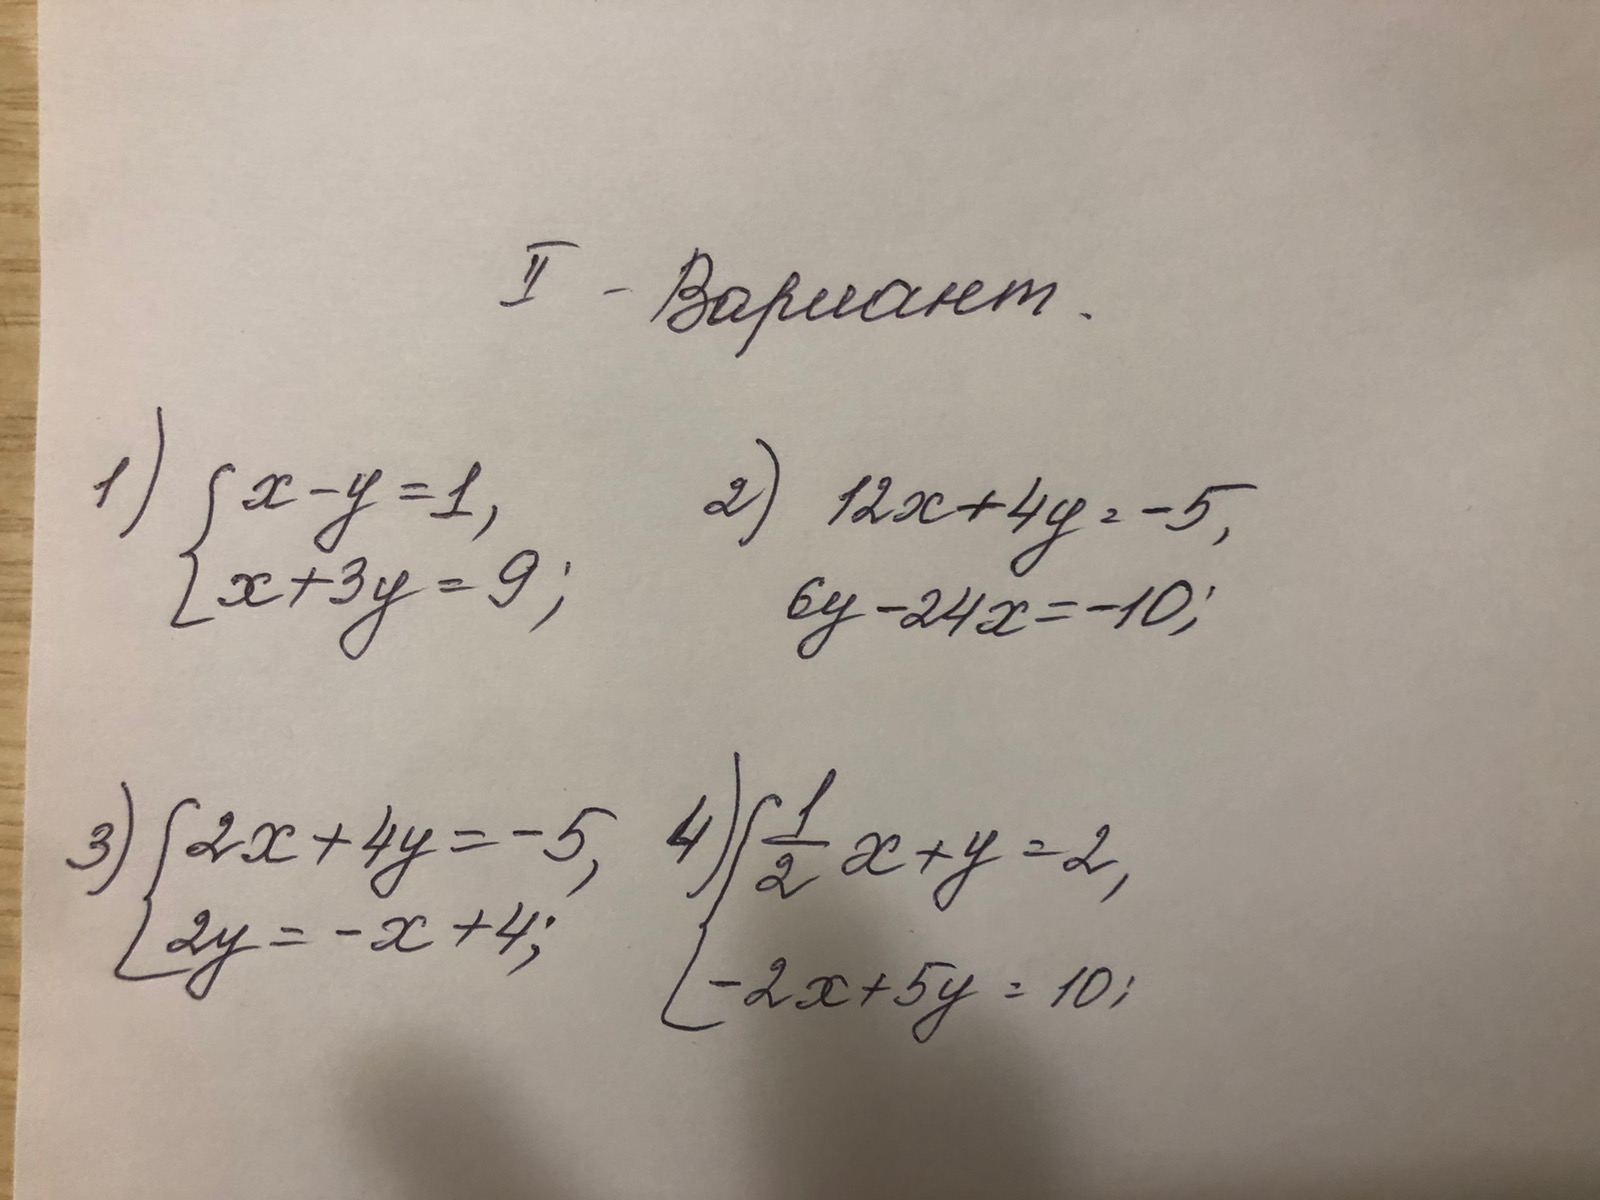 II - Вариант.
1) { x - y = 1,
x + 3y = 9;
2) 12x + 4y = -5,
6y - 24x = -10;
3) { 2x + 4y = -5,
2y = -x + 4;
4) { 1/2 x + y = 2,
-2x + 5y = 10;